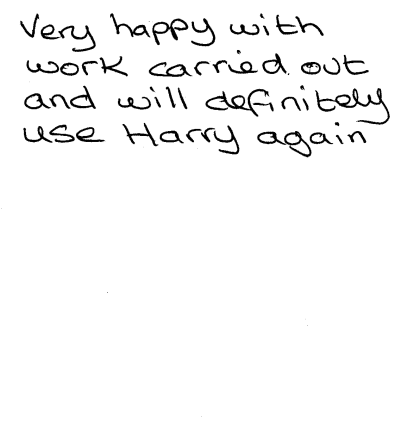 Very happy with
work carried out
and will definitely
use Harry again